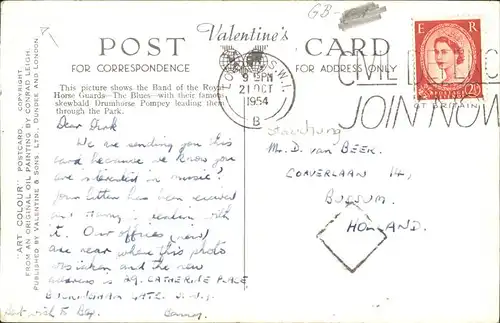 GB-
Valentine's
POST CARD
FOR CORRESPONDENCE
FOR ADDRESS ONLY
This picture shows the Band of the Royal
Horse Guards—The Blues—with their famous
skewbald Drumhorse Pompey leading them
through the Park.
"ART COLOUR" POSTCARD, COPYRIGHT.
FROM AN ORIGINAL OIL PAINTING BY CONRAD LEIGH.
PUBLISHED BY VALENTINE & SONS. LTD., DUNDEE AND LONDON.
LONDON S.W.1.
9 PM
21 OCT
1954
B
CIVIL DEFENCE
JOIN NOW
E R
2½
Dear Dirk
We are sending this
card because we know you
are interested in music!
Your letter has been received
and is dealing with
it. Our offices (new)
are near where this photo
was taken and the new
address is 29, CATHERINE PLACE
BUCKINGHAM GATE. S.W.1.
Best wish to
Mr. D. van BEEK.
CONVERLAAN 14,
BUSSUM.
HOLLAND.